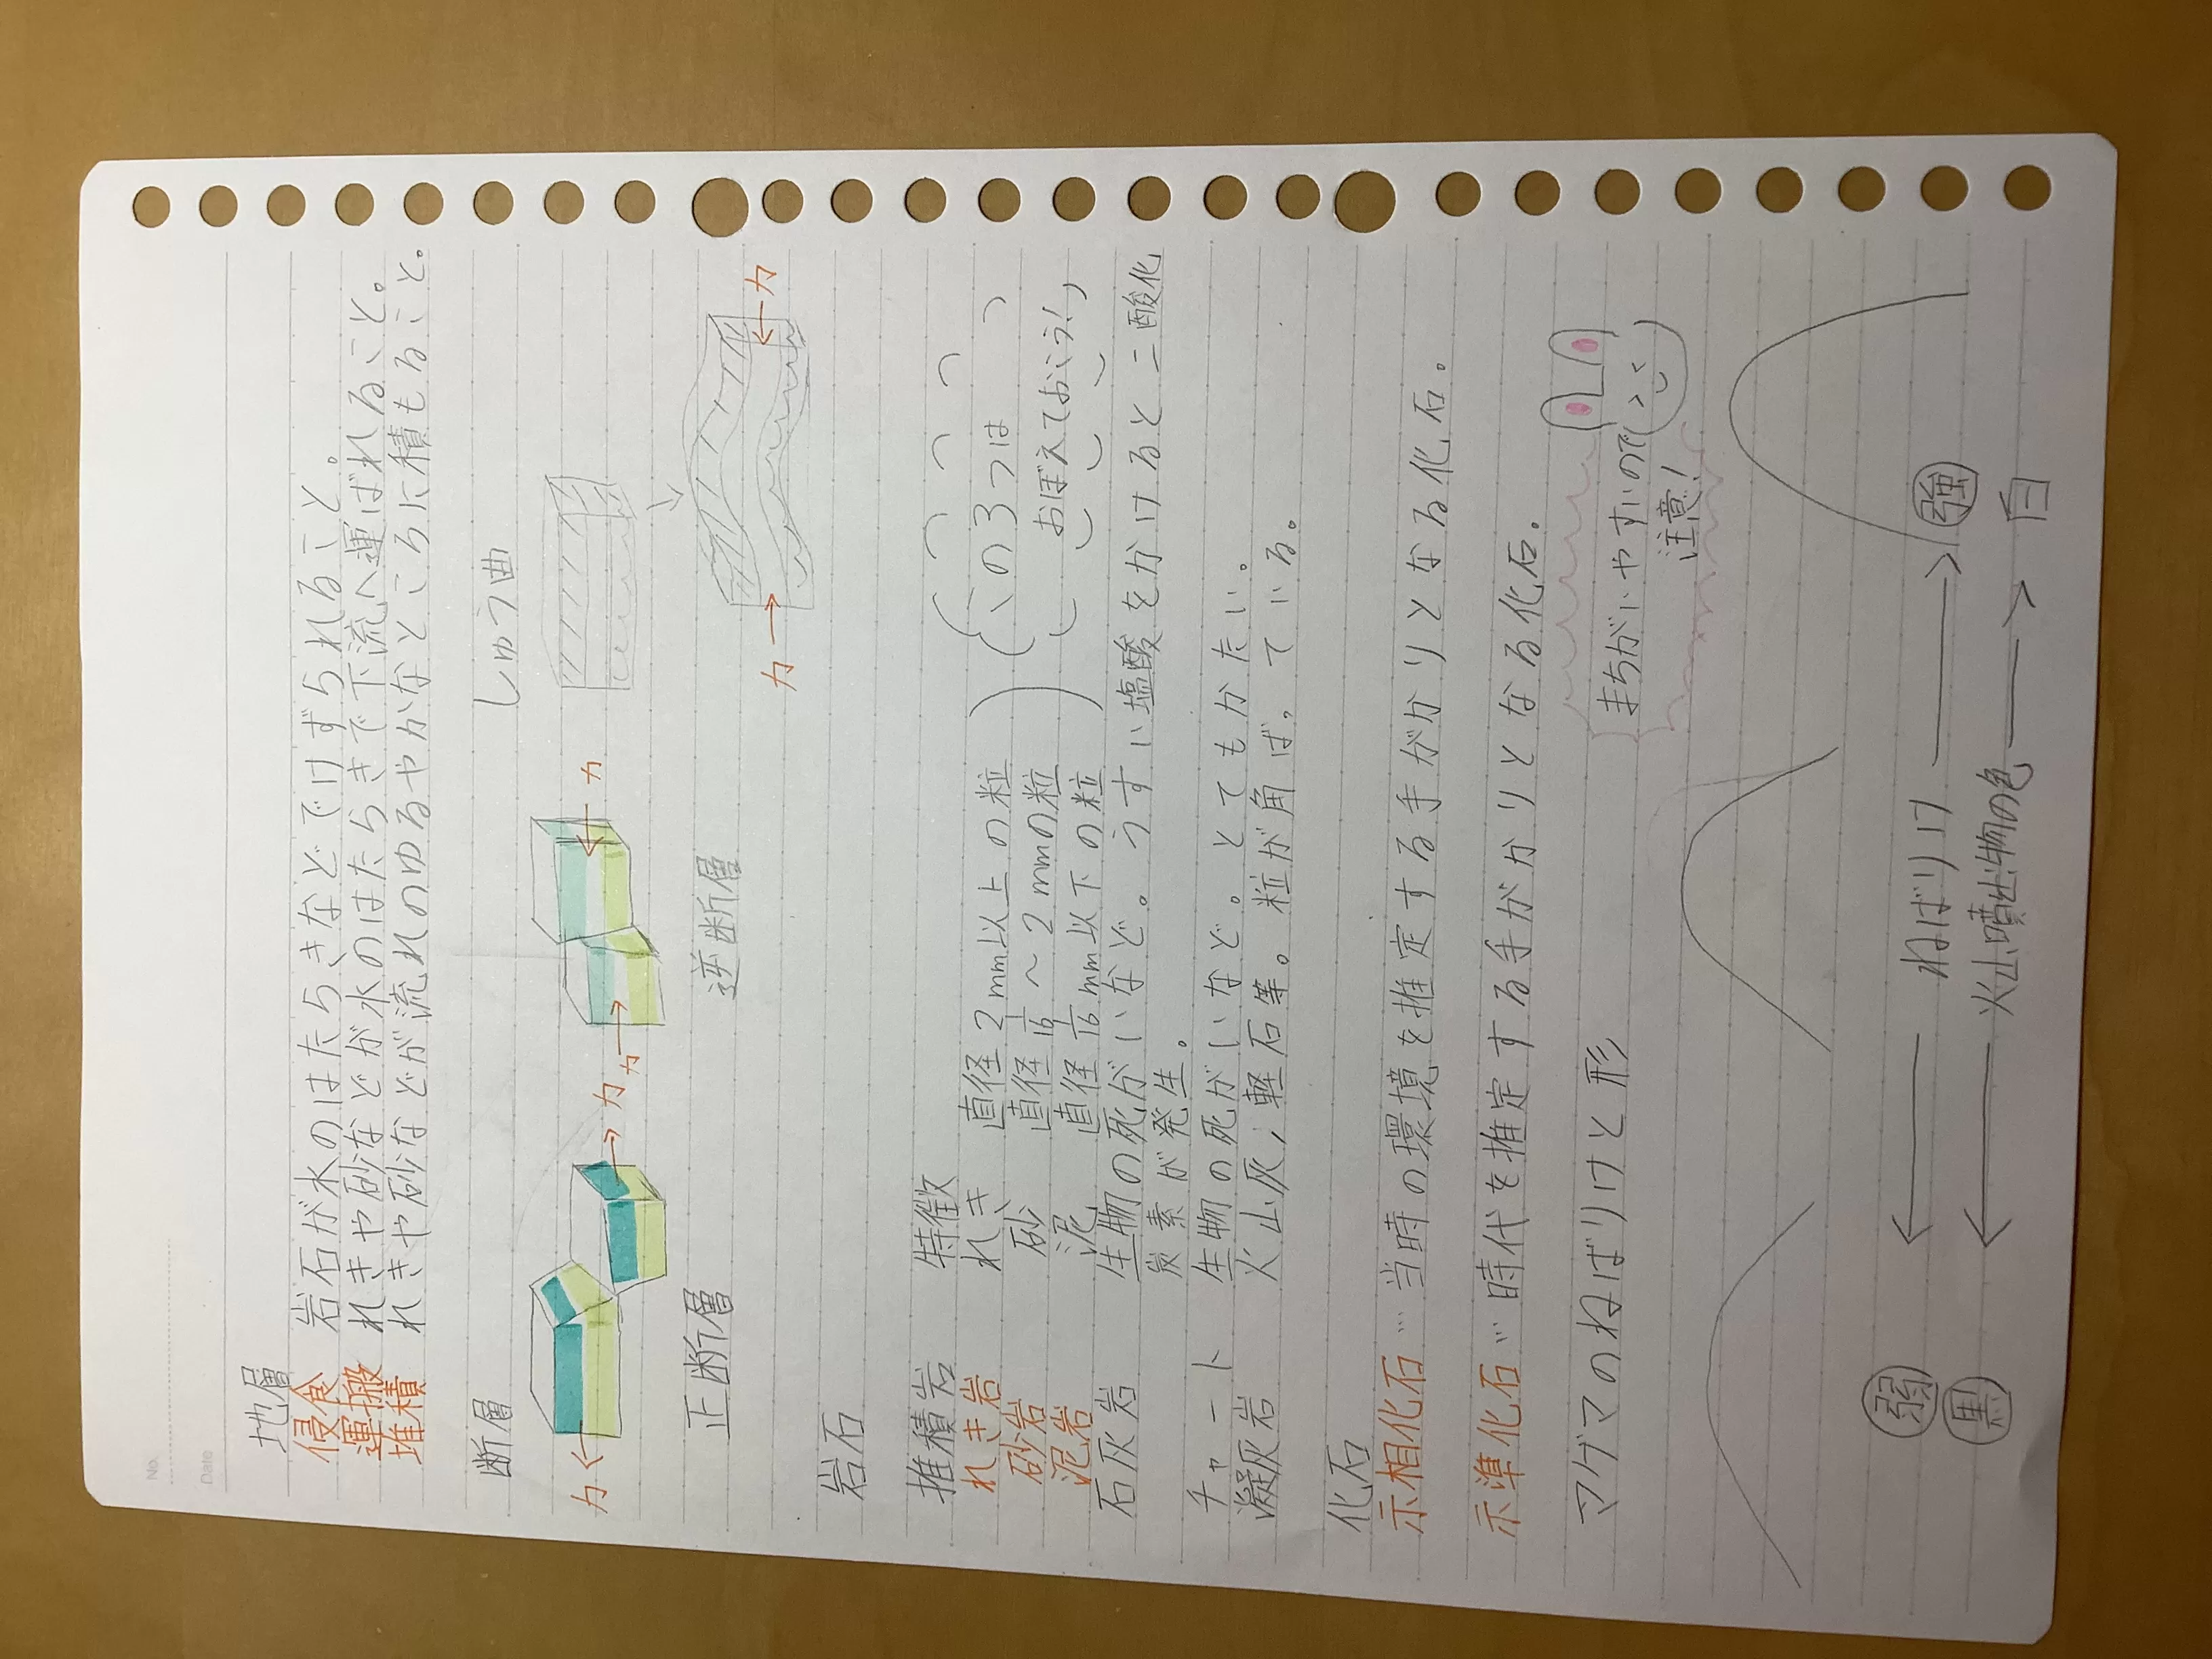 No.
Date
地層
侵食 岩石が水のはたらきなどでけずられること。
運搬 れきや砂などが水のはたらきで下流へ運ばれること。
堆積 れきや砂などが流れのゆるやかなところに積もること。
断層 しゅう曲
力 力 力 力
正断層 逆断層
力 力
岩石
推積岩 特徴
れき岩 れき 直径2mm以上の粒
砂岩 砂 直径1/16~2mmの粒
泥岩 泥 直径1/16mm以下の粒
この3つは
おぼえておこう!
石灰岩 生物の死がいなど。うすい塩酸をかけると二酸化
炭素が発生。
チャート 生物の死がいなど。とてもかたい。
凝灰岩 火山灰,軽石等。粒が角ばっている。
化石
示相化石…当時の環境を推定する手がかりとなる化石。
示準化石…時代を推定する手がかりとなる化石。
マグマのねばりけと形
まちがいやすいので
注意!
弱 ねばりけ 強
黒 火山噴出物の色 白